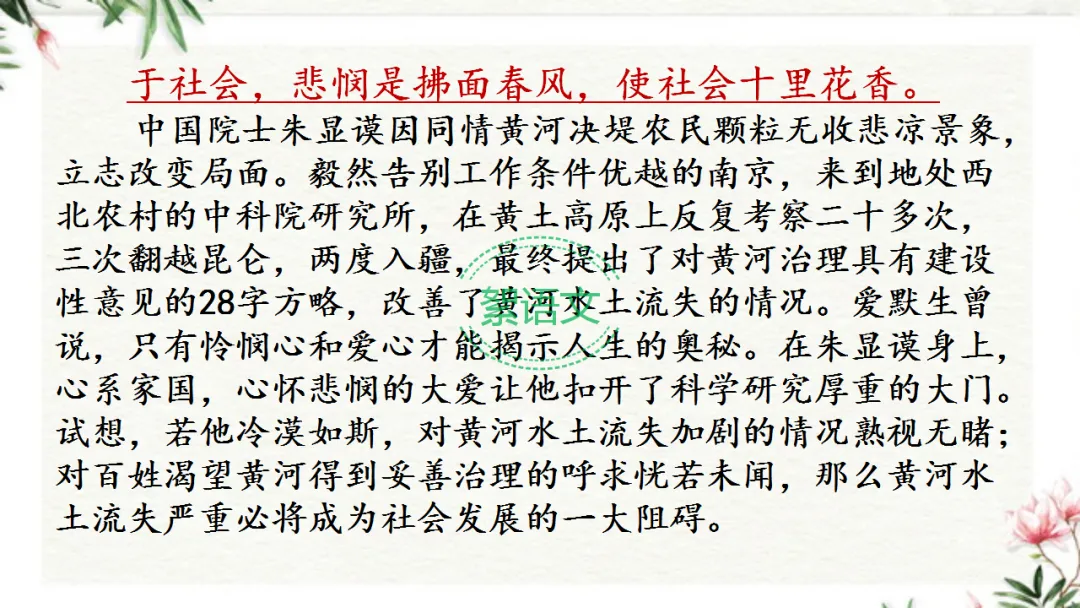 于社会，悲悯是拂面春风，使社会十里花香。
中国院士朱显谟因同情黄河决堤农民颗粒无收悲凉景象，
立志改变局面。毅然告别工作条件优越的南京，来到地处西
北农村的中科院研究所，在黄土高原上反复考察二十多次，
三次翻越昆仑，两度入疆，最终提出了对黄河治理具有建设
性意见的28字方略，改善了黄河水土流失的情况。爱默生曾
说，只有怜悯心和爱心才能揭示人生的奥秘。在朱显谟身上，
心系家国，心怀悲悯的大爱让他扣开了科学研究厚重的大门。
试想，若他冷漠如斯，对黄河水土流失加剧的情况熟视无睹；
对百姓渴望黄河得到妥善治理的呼求恍若未闻，那么黄河水
土流失严重必将成为社会发展的一大阻碍。
絮语文